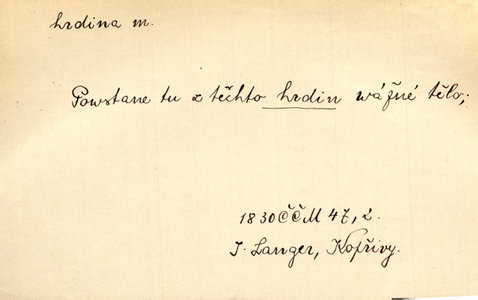 hrdina m.
Powstane tu z těchto hrdin wážné tělo;
1830 ČČM 47, 2.
J. Langer, Kopřivy.